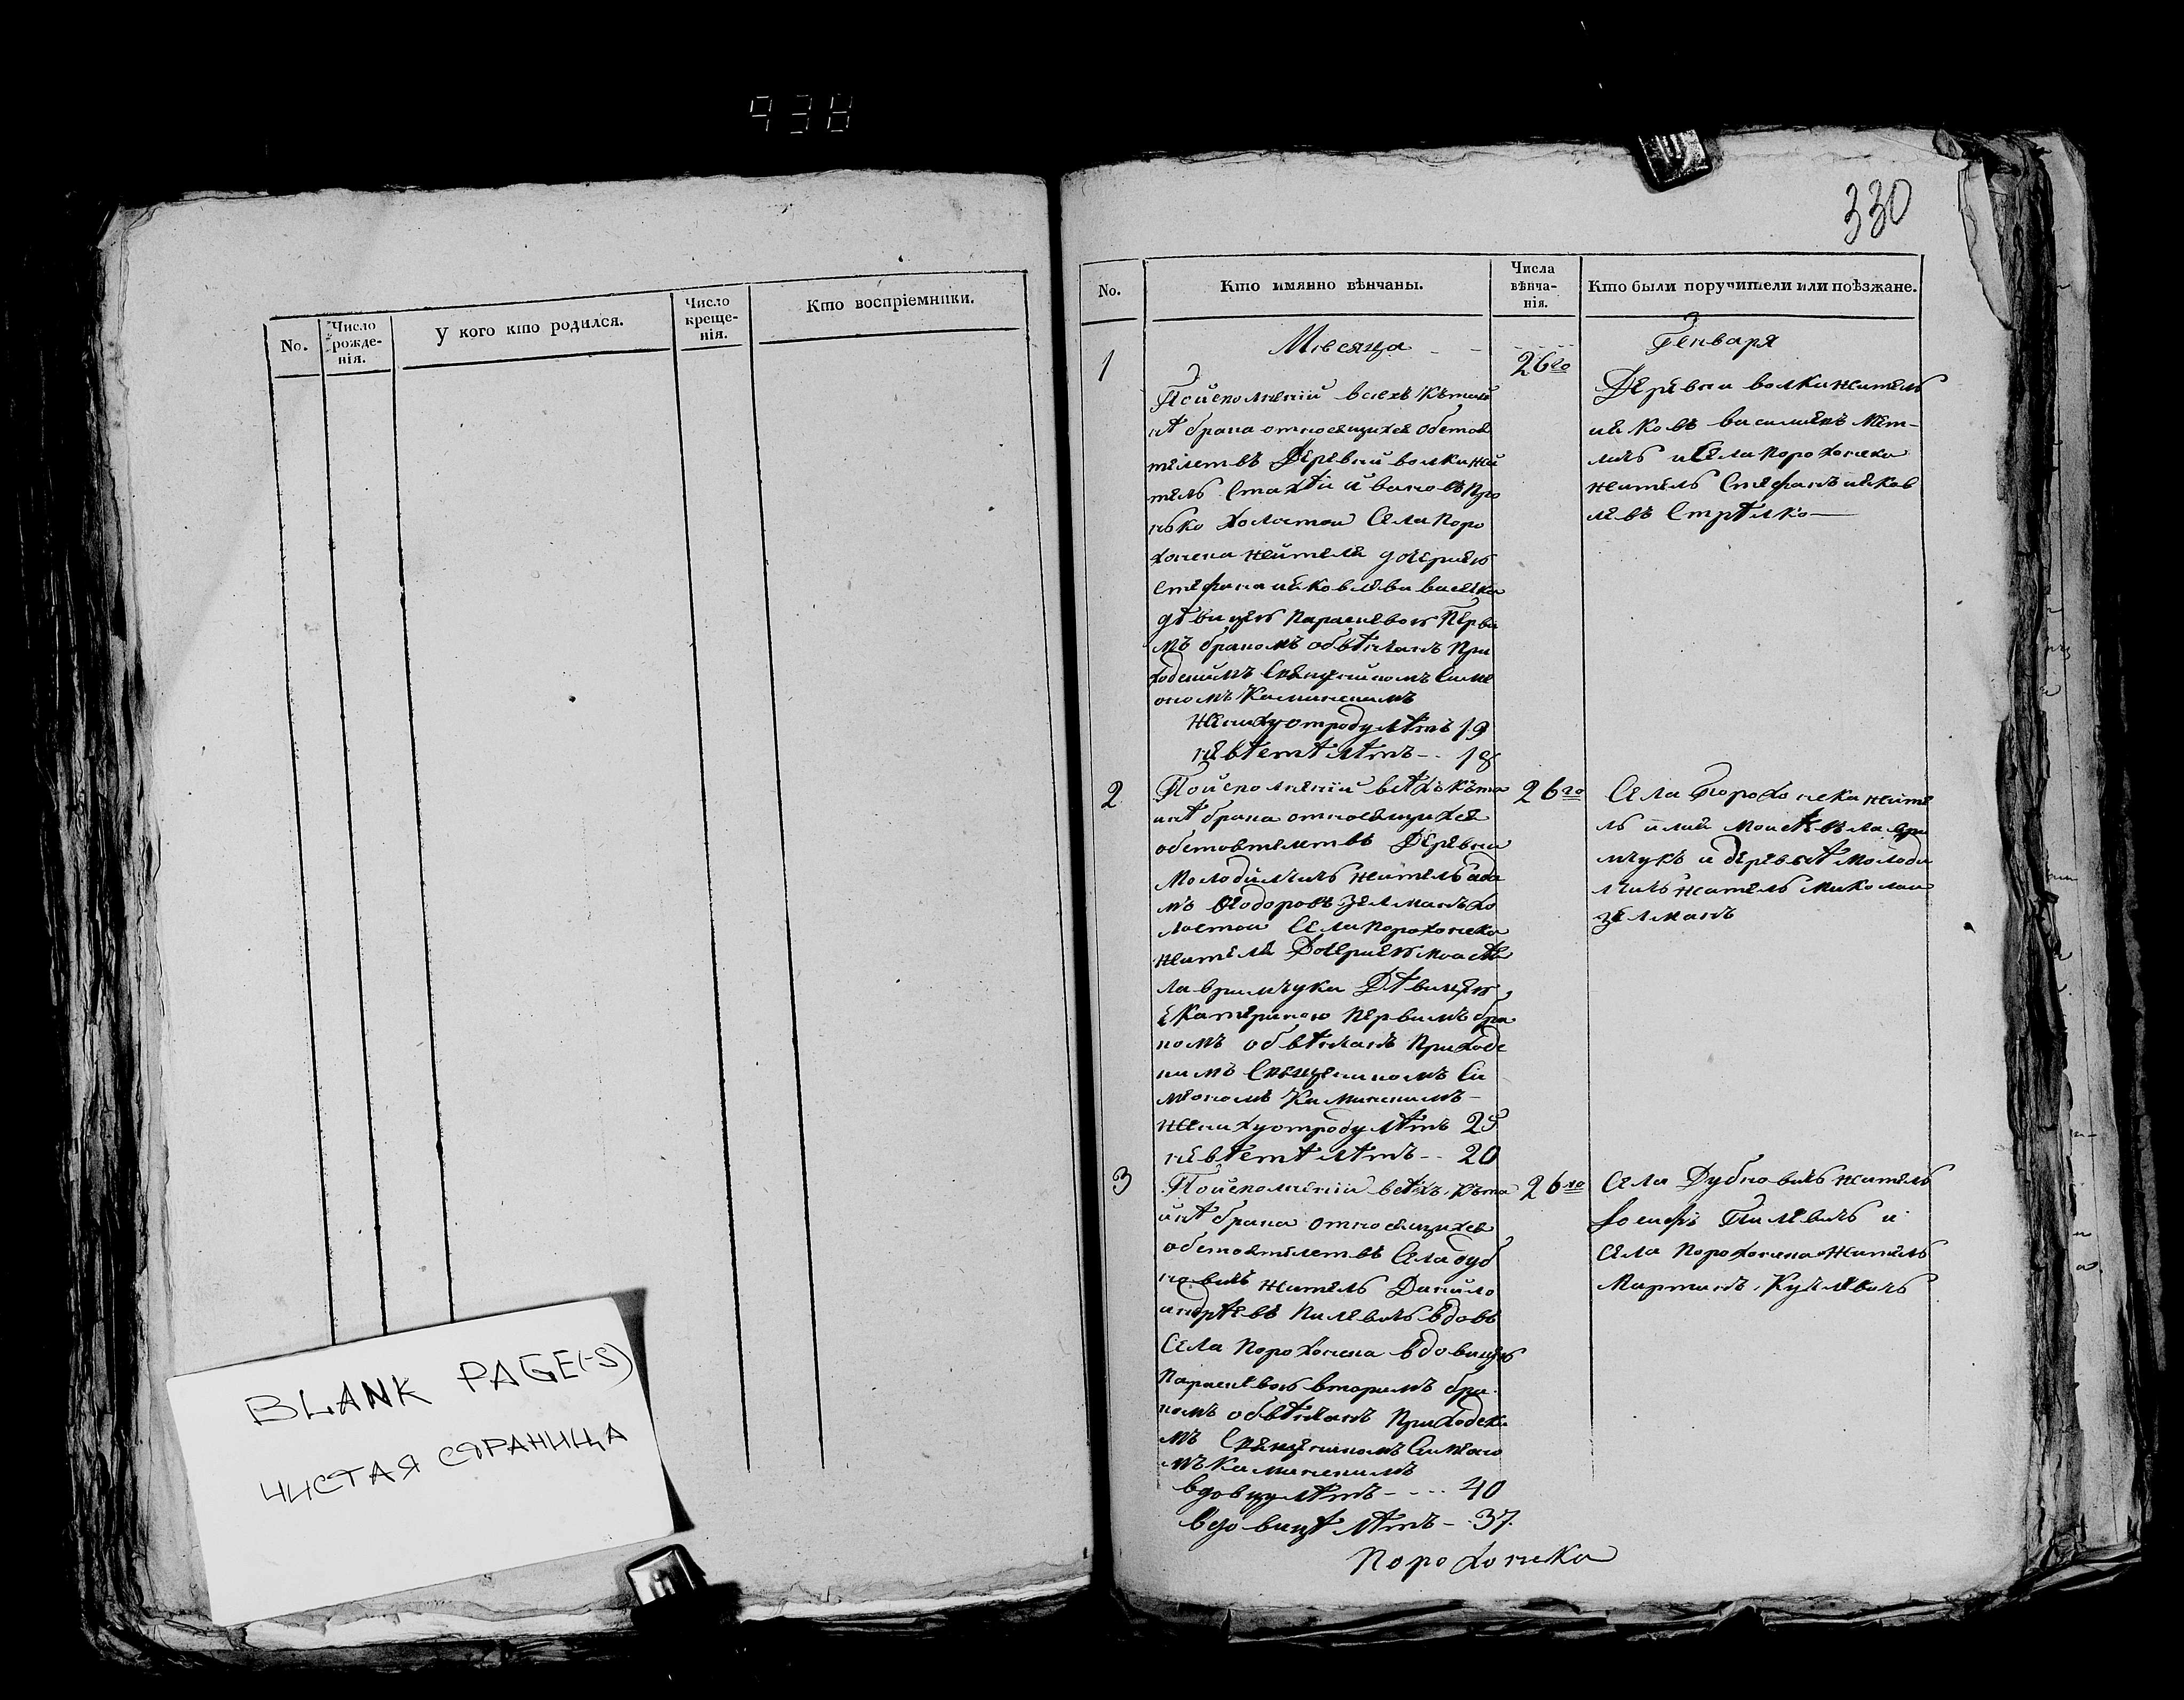 938
330
No.
Число рожде-нія.
У кого кто родился.
Число креще-нія.
Кто воспріемники.
BLANK PAGE(-S)
ЧИСТАЯ СТРАНИЦА
No.
Кто имянно вѣнчаны.
Числа вѣнча-нія.
Кто были поручители или поѣзжане.
Мѣсяца
Генваря
1
По исполненіи всехъ къ таи
нѣ брака относящихся обстоя
телствъ Деревни волки жи
тель Стахѣй ивановъ
холостои Села Поро
хонска жителя дочерию
стефана
дѣвицею Параскевою Первы
мъ бракомъ обвѣнчанъ При
ходскимъ Священникомъ Симе
ономъ Каминскимъ
жениху отроду лѣтъ 19
невѣстѣ лѣтъ - . 18
26го
Деревни волки житель
василиевъ
и Села Порохонска
житель Стефанъ яков
левъ Стрѣлко
2
По исполненіи всѣхъ къ та
инѣ брака относящихся
обстоятелствъ Деревни
Молодилчичь житель ада
мъ Феодоровъ Зелманъ хо
лостои Села Порохонска
жителя Дочерию
Дѣвицею
Екатериною Первимъ бра
комъ обвѣнчанъ Приходс
кимъ Священникомъ Си
меономъ Каминскимъ
жениху отроду лѣтъ 25
невѣстѣ лѣтъ - - 20
26го
Села Порохонска жите
ль илия
и деревнѣ Молоди
лчичь житель Миколаи
Зелманъ
3
По исполненіи всѣхъ къ та
инѣ брака относящихся
обстоятелствъ Села дуб
новичь житель Данило
андрѣевъ Пилевичь вдовъ
Села Порохонска вдовицею
Параскевою вторимъ бра
комъ обвѣнчанъ Приходски
мъ Священникомъ Симеоно
мъ Каминскимъ
вдовцу лѣтъ - - - - 40
вдовицѣ лѣтъ - . 37.
26го
Села Дубновичь житель
Іосифъ Пилевичь и
Села Порохонска житель
Мартинъ
Порохонска